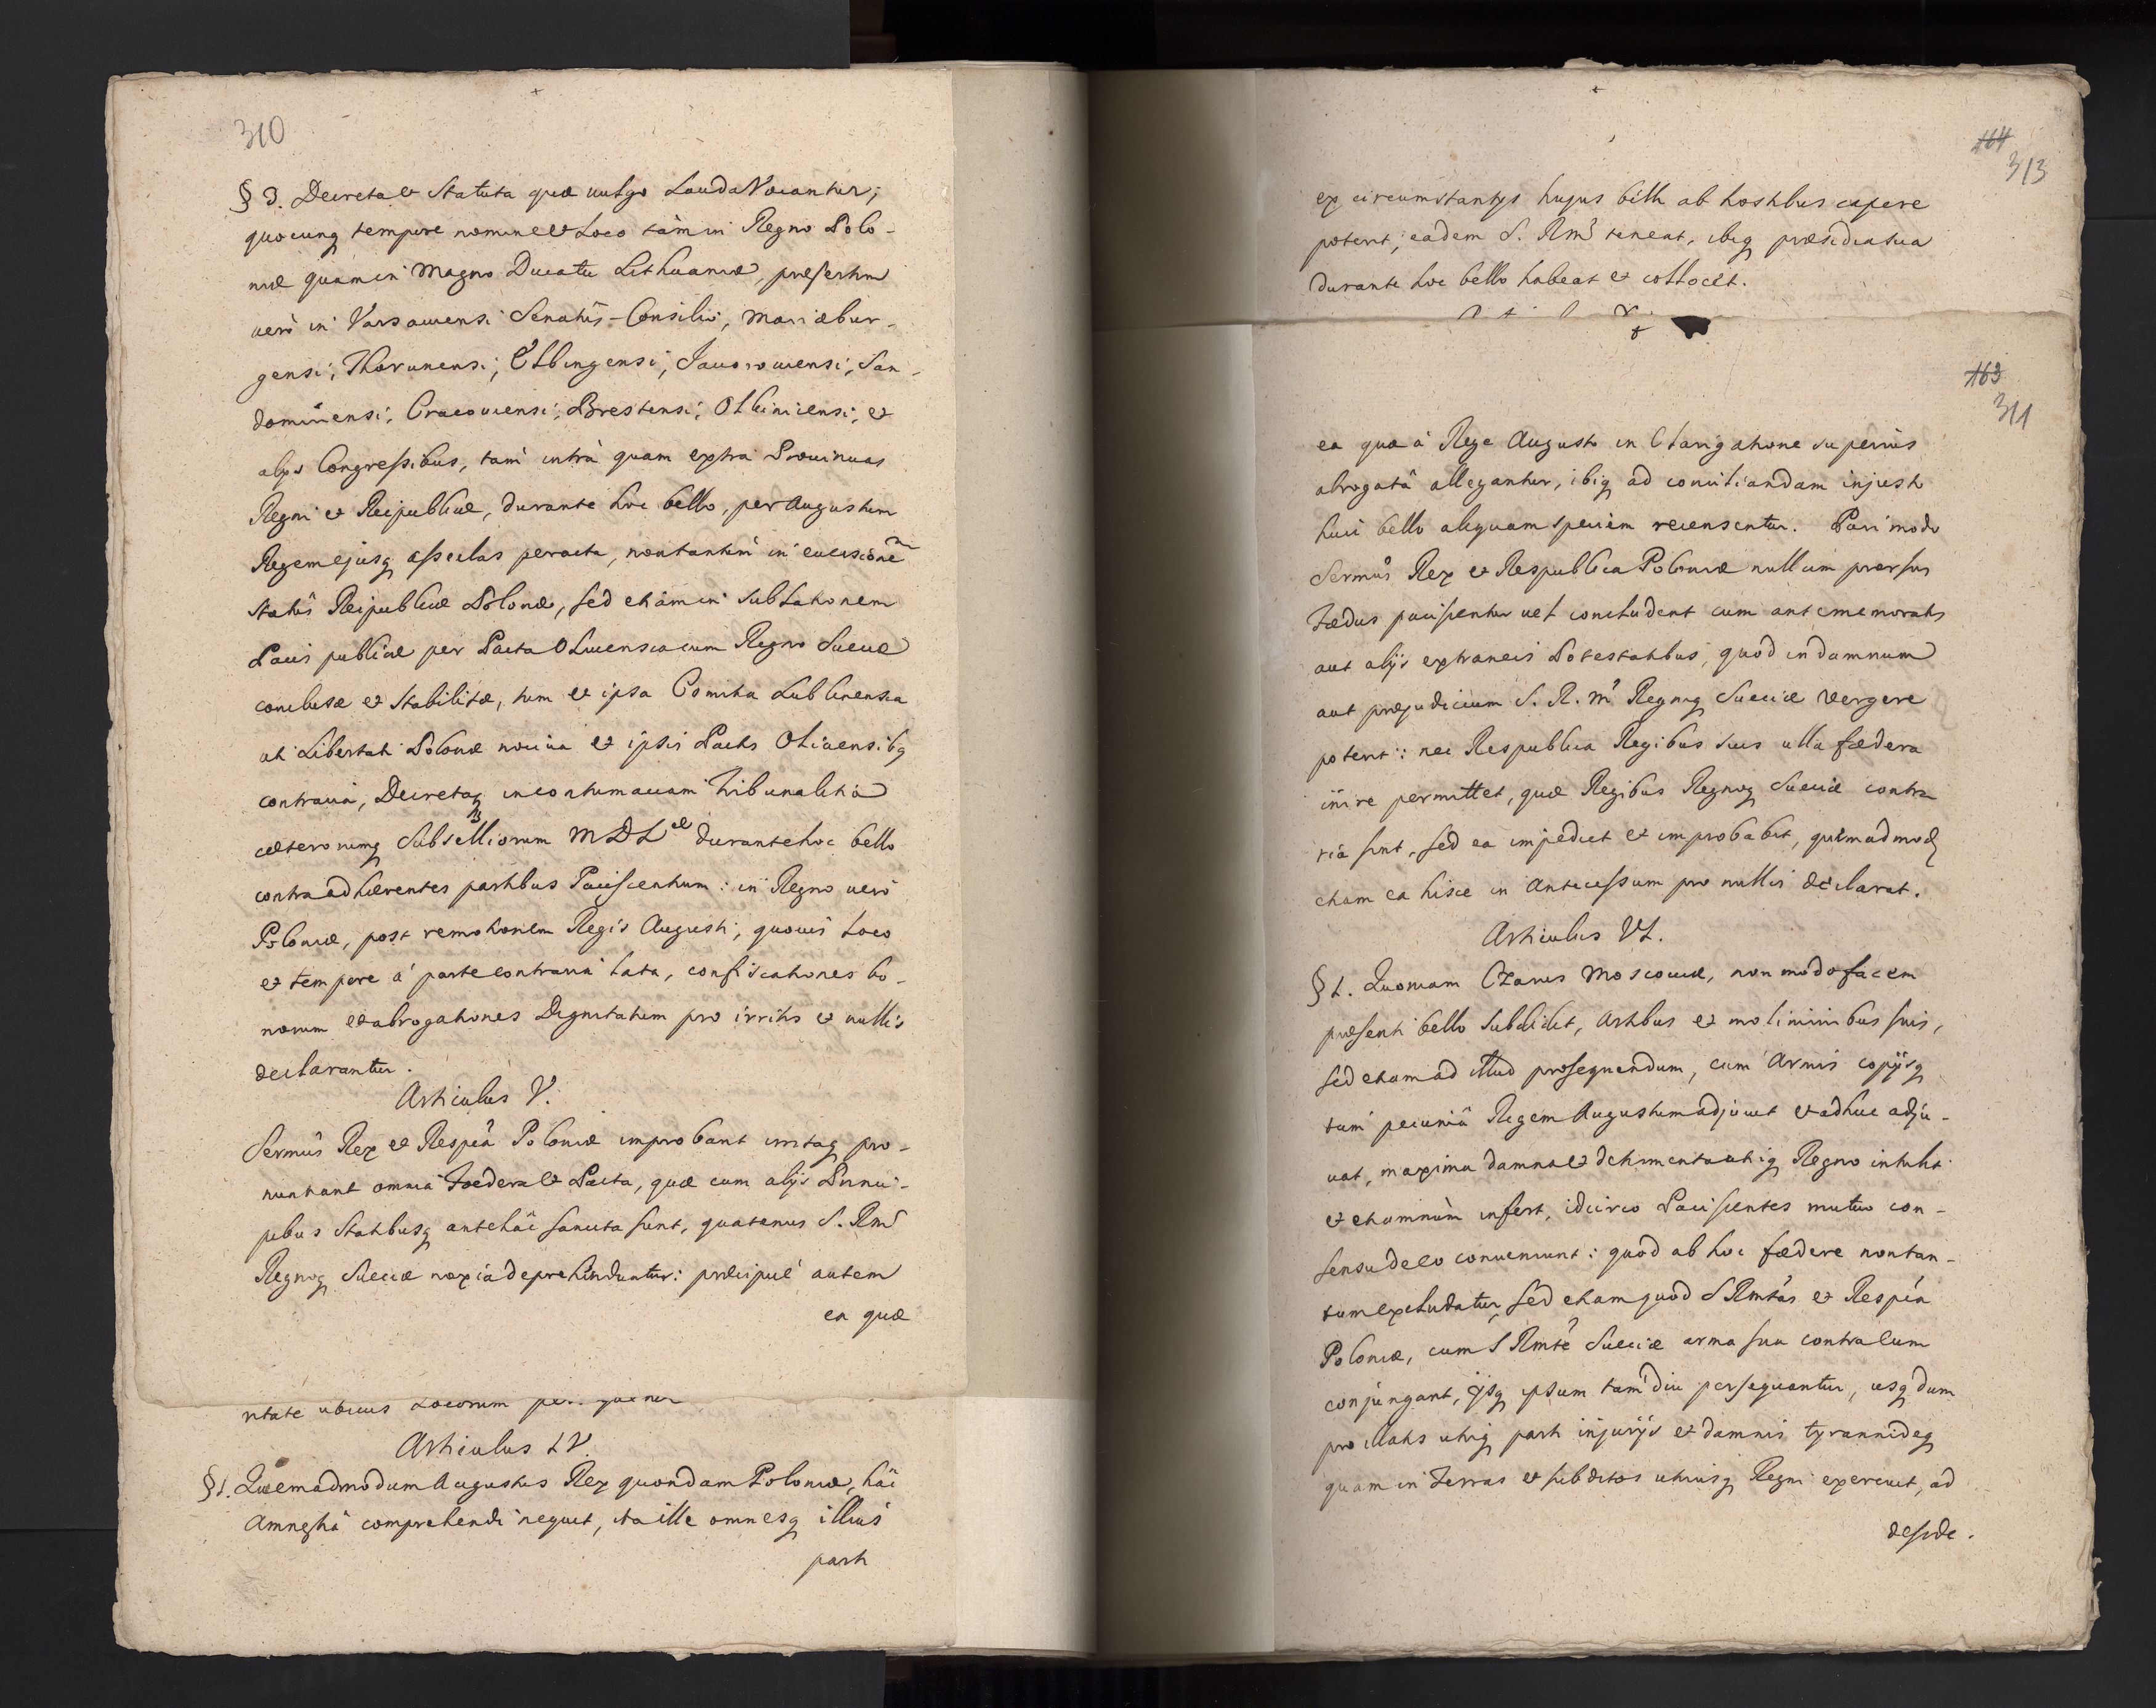 310
§ 3. Decreta & Statuta quæ vulgo Lauda Vocantur;
quocunq tempore nomine & Loco tàm in Regno Polo-
niæ quam in Magno Ducatu Lithuaniæ, præsertim
verò in Varsauiensi Senatûs-Consilio, Mariæbur-
gensi, Thorunensi, Elbingensi, Jauorouiensi, San-
domiriensi, Cracouiensi, Brestensi, Olkiniciensi, &
alijs Congressibus, tam intrà quam extra Prouincias
Regni & Reipublicæ, durante hoc bello, per Augustum
Regem ejusq asseclas peracta, non tantum in euersionem
Statûs Reipublicæ Polonæ, sed etiam in sublationem
Pacis publicæ per Pacta Oliuensia cum Regno Sueciæ
conclusæ & stabilitæ, tum & ipsa Comitia Lublinensia
uti Libertati Polonæ nociua & ipsis Pactis Oliuensibq
contraria, Decretaq in contumaciam Tribunalitia
cæterorumq Subselliorum MDLæ durante hoc bello
contra adhærentes partibus Paciscentium: in Regno verò
Poloniæ, post remotionem Regis Augusti, quouis Loco
& tempore à parte contraria lata, confiscationes bo-
norum & abrogationes Dignitatum pro irritis & nullis
declarantur.
Articulus V.
Sermûs Rex & Respca Poloniæ improbant irritaq pro-
nuntiant omnia Foedera & Pacta, quæ cum alijs Princi-
pibus Statibusq antehàc sancita sunt, quatenus S. Rmˢ
Regnoq Sueciæ noxia deprehenduntur: præcipuè autem
ea quæ
ntate ubiuis Locorum
Articulus IV.
§1. Quemadmodum Augustus Rex quondam Poloniæ, hâc
Amnestiâ comprehendi nequit, ita ille omnesq illius
parti
164
313
ex circumstantijs hujus belli ab hostibus capere
poterit, eadem S. Rmˢ teneat, ibiq præsidia sua
durante hoc bello habeat & collocet.
163
311
ea quæ à Rege Augusto in Elargatione superiùs
abrogatâ allegantur, ibiq ad conciliandam injusto
huic bello aliquam speciem recensentur. Pari modo
Sermûs Rex & Respublica Poloniæ nullum prorsus
Fædus paciscentur vel concludent cum antememoratis
aut alijs extraneis Potestatibus, quod in damnum
aut præjudicium S. R. Mˢ Regniq Sueciæ vergere
poterit: nec Respublica Regibus suis ulla fædera
inire permittet, quæ Regibus Regnoq Sueciæ contra-
ria sint, sed ea impediet & improbabit, quemadmodq
etiam ea hisce in antecessum pro nullis declarat.
Articulus VI.
§ 1. Quoniam Czarus Moscouiæ, non modo facem
præsenti bello subdidit, artibus & moliminibus suis,
sed etiam ad illud prosequendum, cum Armis copijsq
tum pecuniâ Regem Augustum adjuuit & adhuc adju-
uat, maxima damna & detrimenta utriq Regno intulit
& etiamnùm infert, idcirco Paciscentes mutuo con-
sensu de eo conueniunt: quod ab hoc fædere non tan-
tum excludatur, sed etiam quod S Rmtàs & Respca
Poloniæ, cum S Rmte Sueciæ arma sua contra eum
conjungant, ijsq ipsum tamdiu persequantur, usq dum
pro illatis utriq parti injurijs & damnis tyrannideq
quam in Terras & subditos utriusq Regni exercuit, ad
deside.